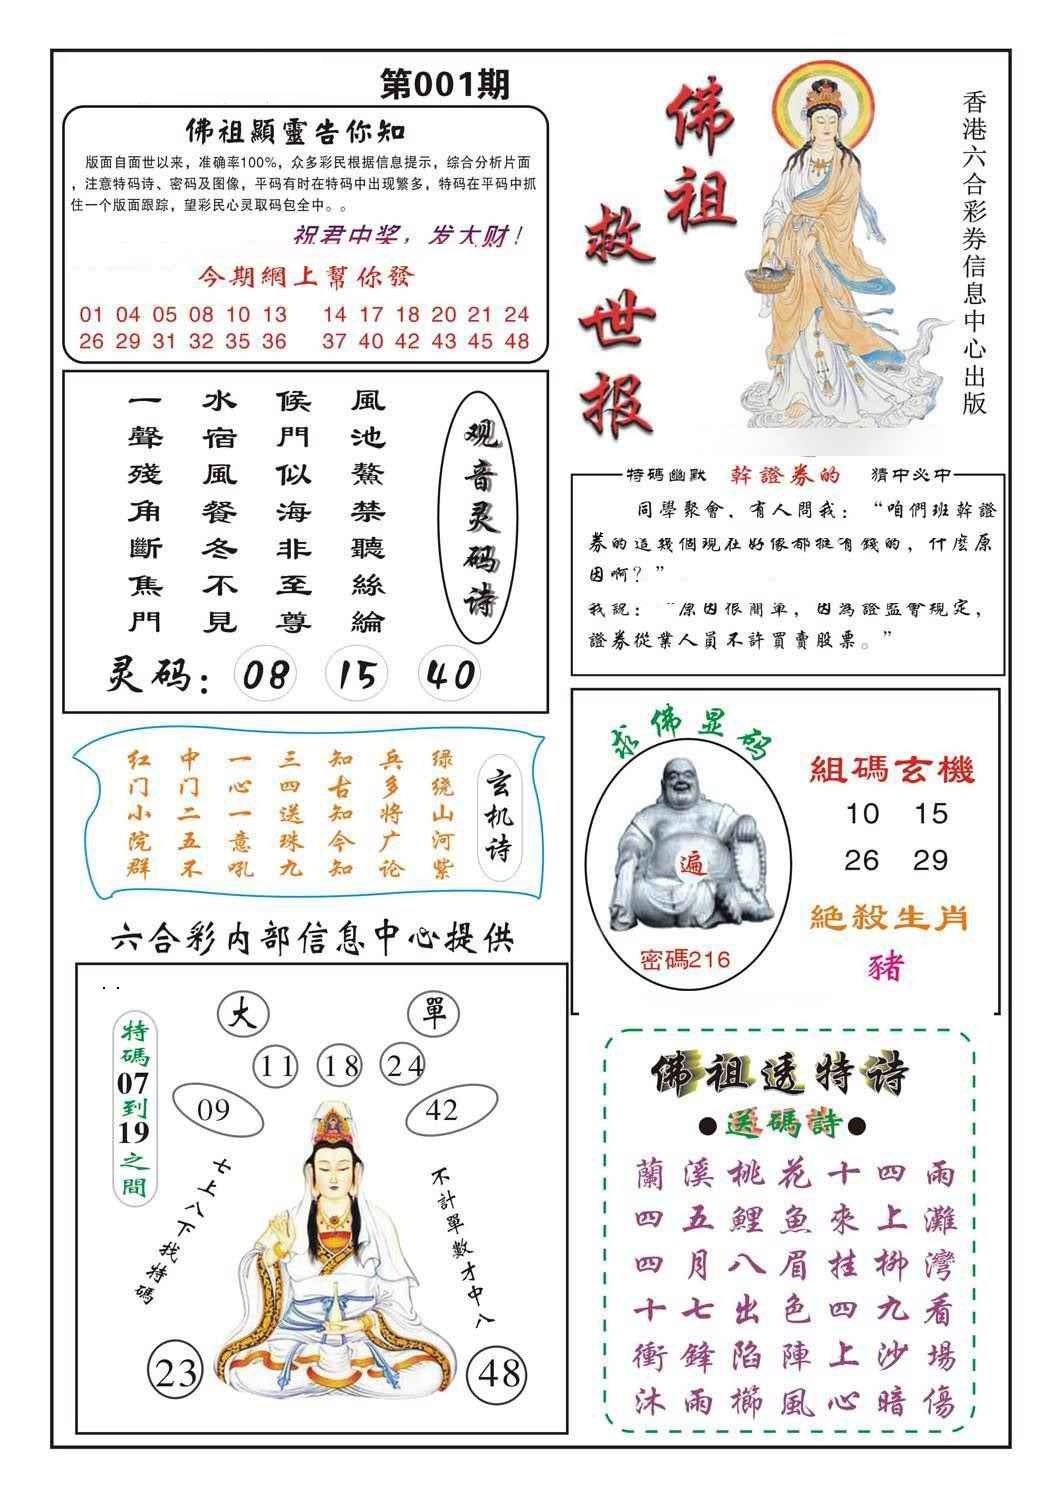 第001期
佛祖顯靈告你知
版面自面世以来，准确率100%，众多彩民根据信息提示，综合分析片面
，注意特码诗、密码及图像，平码有时在特码中出现繁多，特码在平码中抓
住一个版面跟踪，望彩民心灵取码包全中。。
祝君中奖，发大财！
今期網上幫你發
01 04 05 08 10 13 14 17 18 20 21 24
26 29 31 32 35 36 37 40 42 43 45 48
佛祖
救世报
香港六合彩券信息中心出版
观音灵码诗
風池鰲禁聽絲綸
侯門似海非至尊
水宿風餐冬不見
一聲殘角斷焦門
灵码：08 15 40
特碼幽默 幹證券的 猜中必中
同學聚會，有人問我：“咱們班幹證
券的這幾個現在好像都挺有錢的，什麼原
因啊？”
我説：“原因很簡單，因為證監會規定，
證券從業人員不許買賣股票。”
玄机诗
绿绕山河紫
兵多将广论
知古知今知
三四送珠九
一心一意吼
中门二五不
红门小院群
求佛显码
遍
密碼216
組碼玄機
10 15
26 29
絕殺生肖
豬
六合彩内部信息中心提供
特碼07到19之間
大 單
11 18 24
09 42
七上八下找特碼
不計單數才中八
23 48
佛祖透特诗
●送碼詩●
蘭溪桃花十四雨
四五鯉魚來上灘
四月八眉挂柳灣
十七出色四九看
衝鋒陷陣上沙場
沐雨櫛風心暗傷